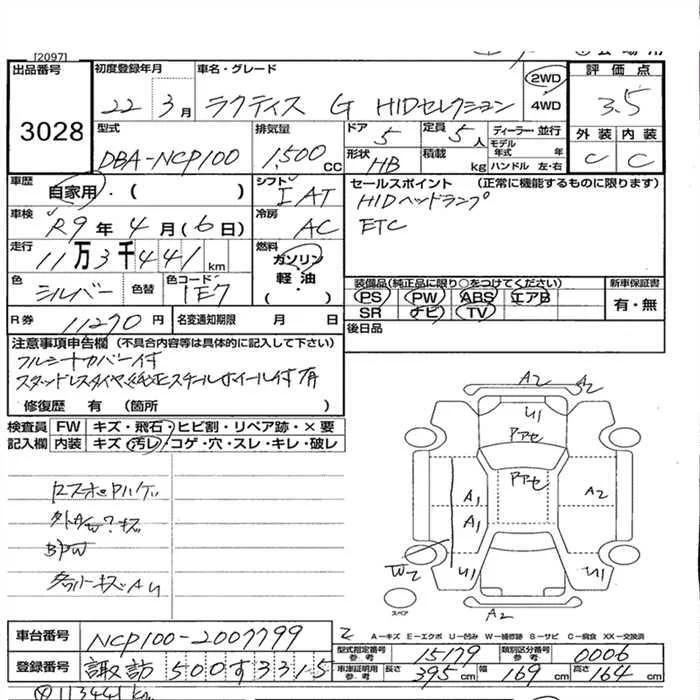 [2097]
出品番号 3028
初度登録年月 22 3月
車名・グレード ラクティス G HIDセレクション
2WD 4WD
評価点 3.5
外装 C 内装 C
型式 DBA-NCP100
排気量 1,500 CC
ドア 5 定員 5人
形状 HB 積載 kg
ディーラー・並行
モデル年式 年
ハンドル 左・右
車歴 自家用・( )
シフト IAT
車検 R9年4月(6日)
冷房 AC
走行 11万3千441km
燃料 ガソリン 軽油 ( ・ )
色 シルバー 色替 色コード 1E7
R券 11270円 名変通知期限 月 日
セールスポイント (正常に機能するものに限ります)
HIDヘッドランプ
ETC
装備品(純正品に限り○をつけてください)
PS PW ABS エアB
SR ナビ TV
新車保証書 有・無
後日品
注意事項申告欄 (不具合内容等は具体的に記入して下さい)
フルシートカバー付
スタッドレスタイヤ、純正スチールホイール付 有
修復歴 有 (箇所 )
検査員 FW キズ・飛石・ヒビ割・リペア跡・×要
記入欄 内装 キズ 汚レ コゲ・穴・スレ・キレ・破レ
BPW
A2 A2
U1
アアセ
アアセ
A1 A2
A1
W2 U1 U1
スペア
A2
A-キズ E-エクボ U-凹み W-補修跡 S-サビ C-腐食 XX-交換済
車台番号 NCP100-2007799
登録番号 諏訪 500 す 3315
型式指定番号 参考 15179 類別区分番号 参考 0006
車庫証明用 参考 長さ 395cm 幅 169cm 高さ 164cm
113441km